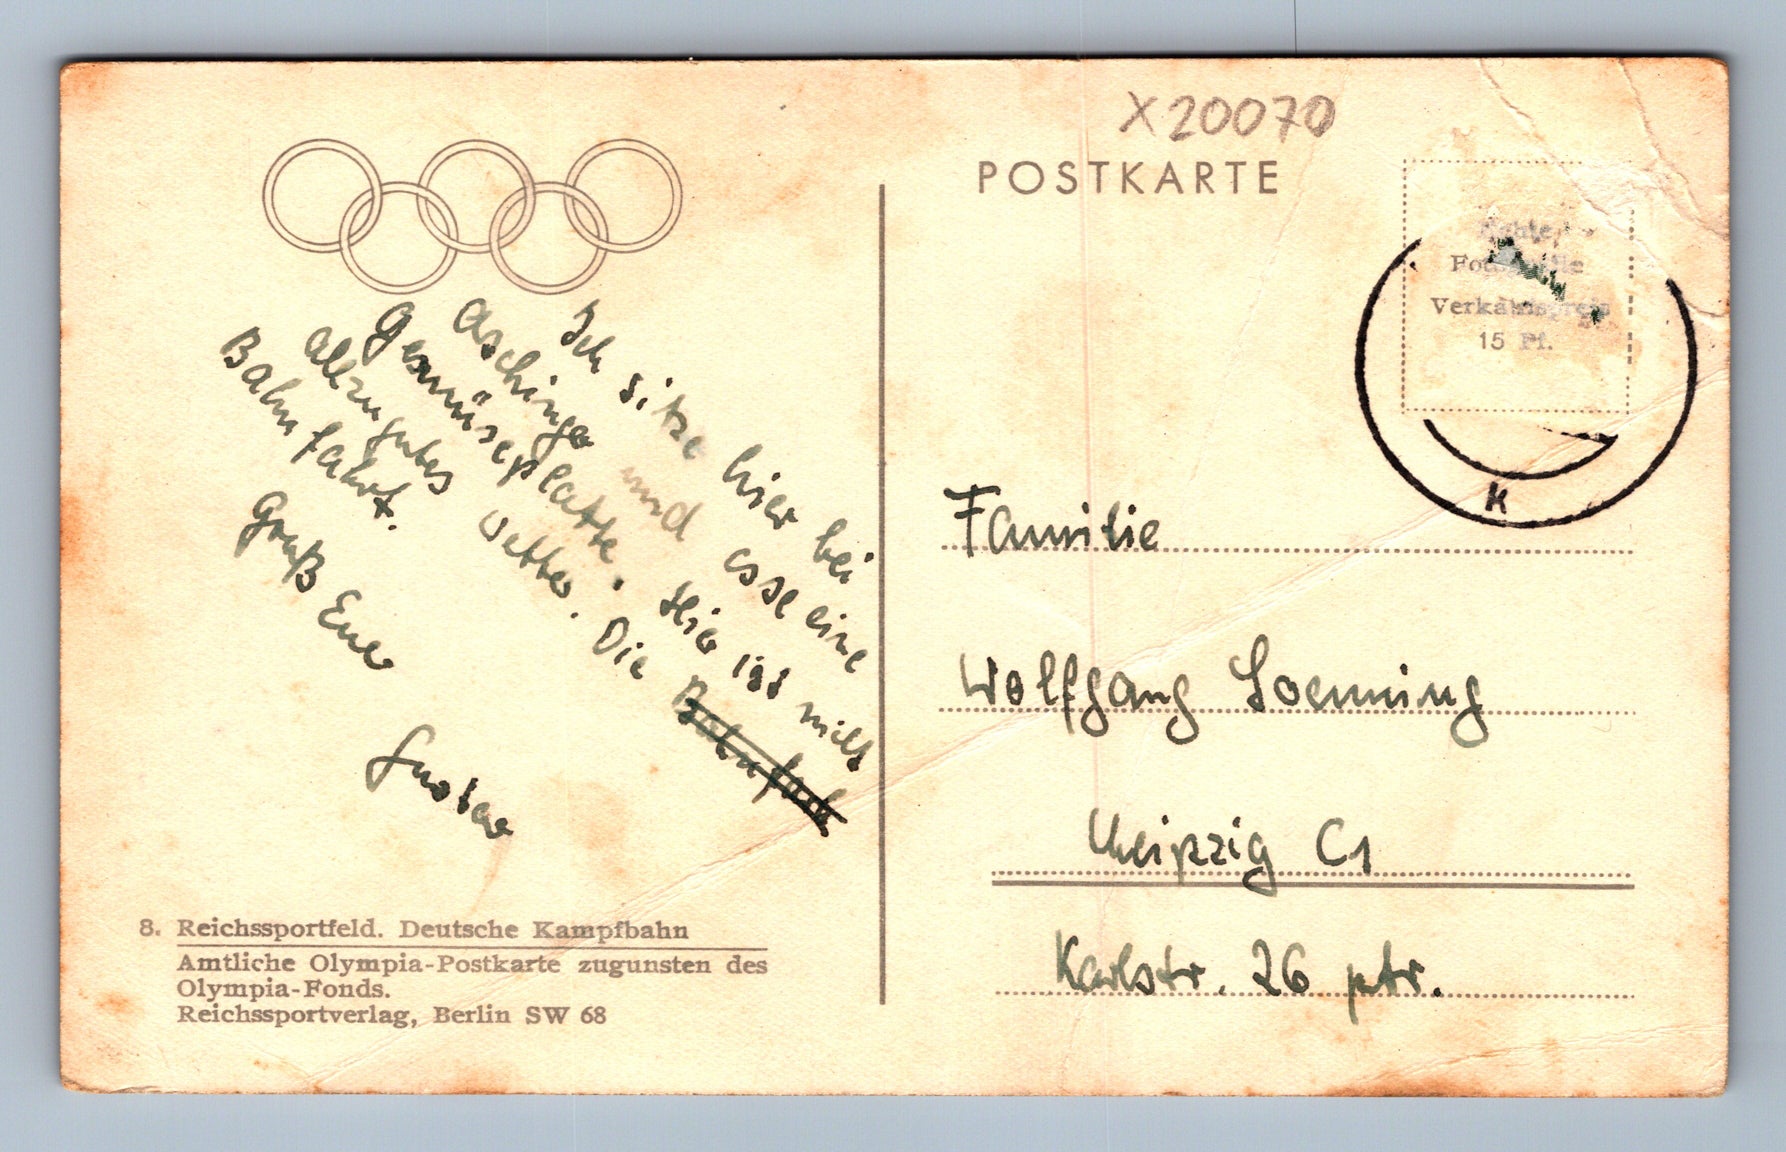 X20070
POSTKARTE
Echte
Fotografie
Verkaufspreis
15 Pf.
k
Ich sitze hier bei
Aschinger und esse eine
Gemüseplatte. Hier ist nicht
allzugutes Wetter. Die Bahnfah
Bahnfahrt.
Gruß Euer
Gustav
Familie
Wolfgang Loenning
Leipzig C1
Karlstr. 26 ptr.
8. Reichssportfeld. Deutsche Kampfbahn
Amtliche Olympia-Postkarte zugunsten des
Olympia-Fonds.
Reichssportverlag, Berlin SW 68